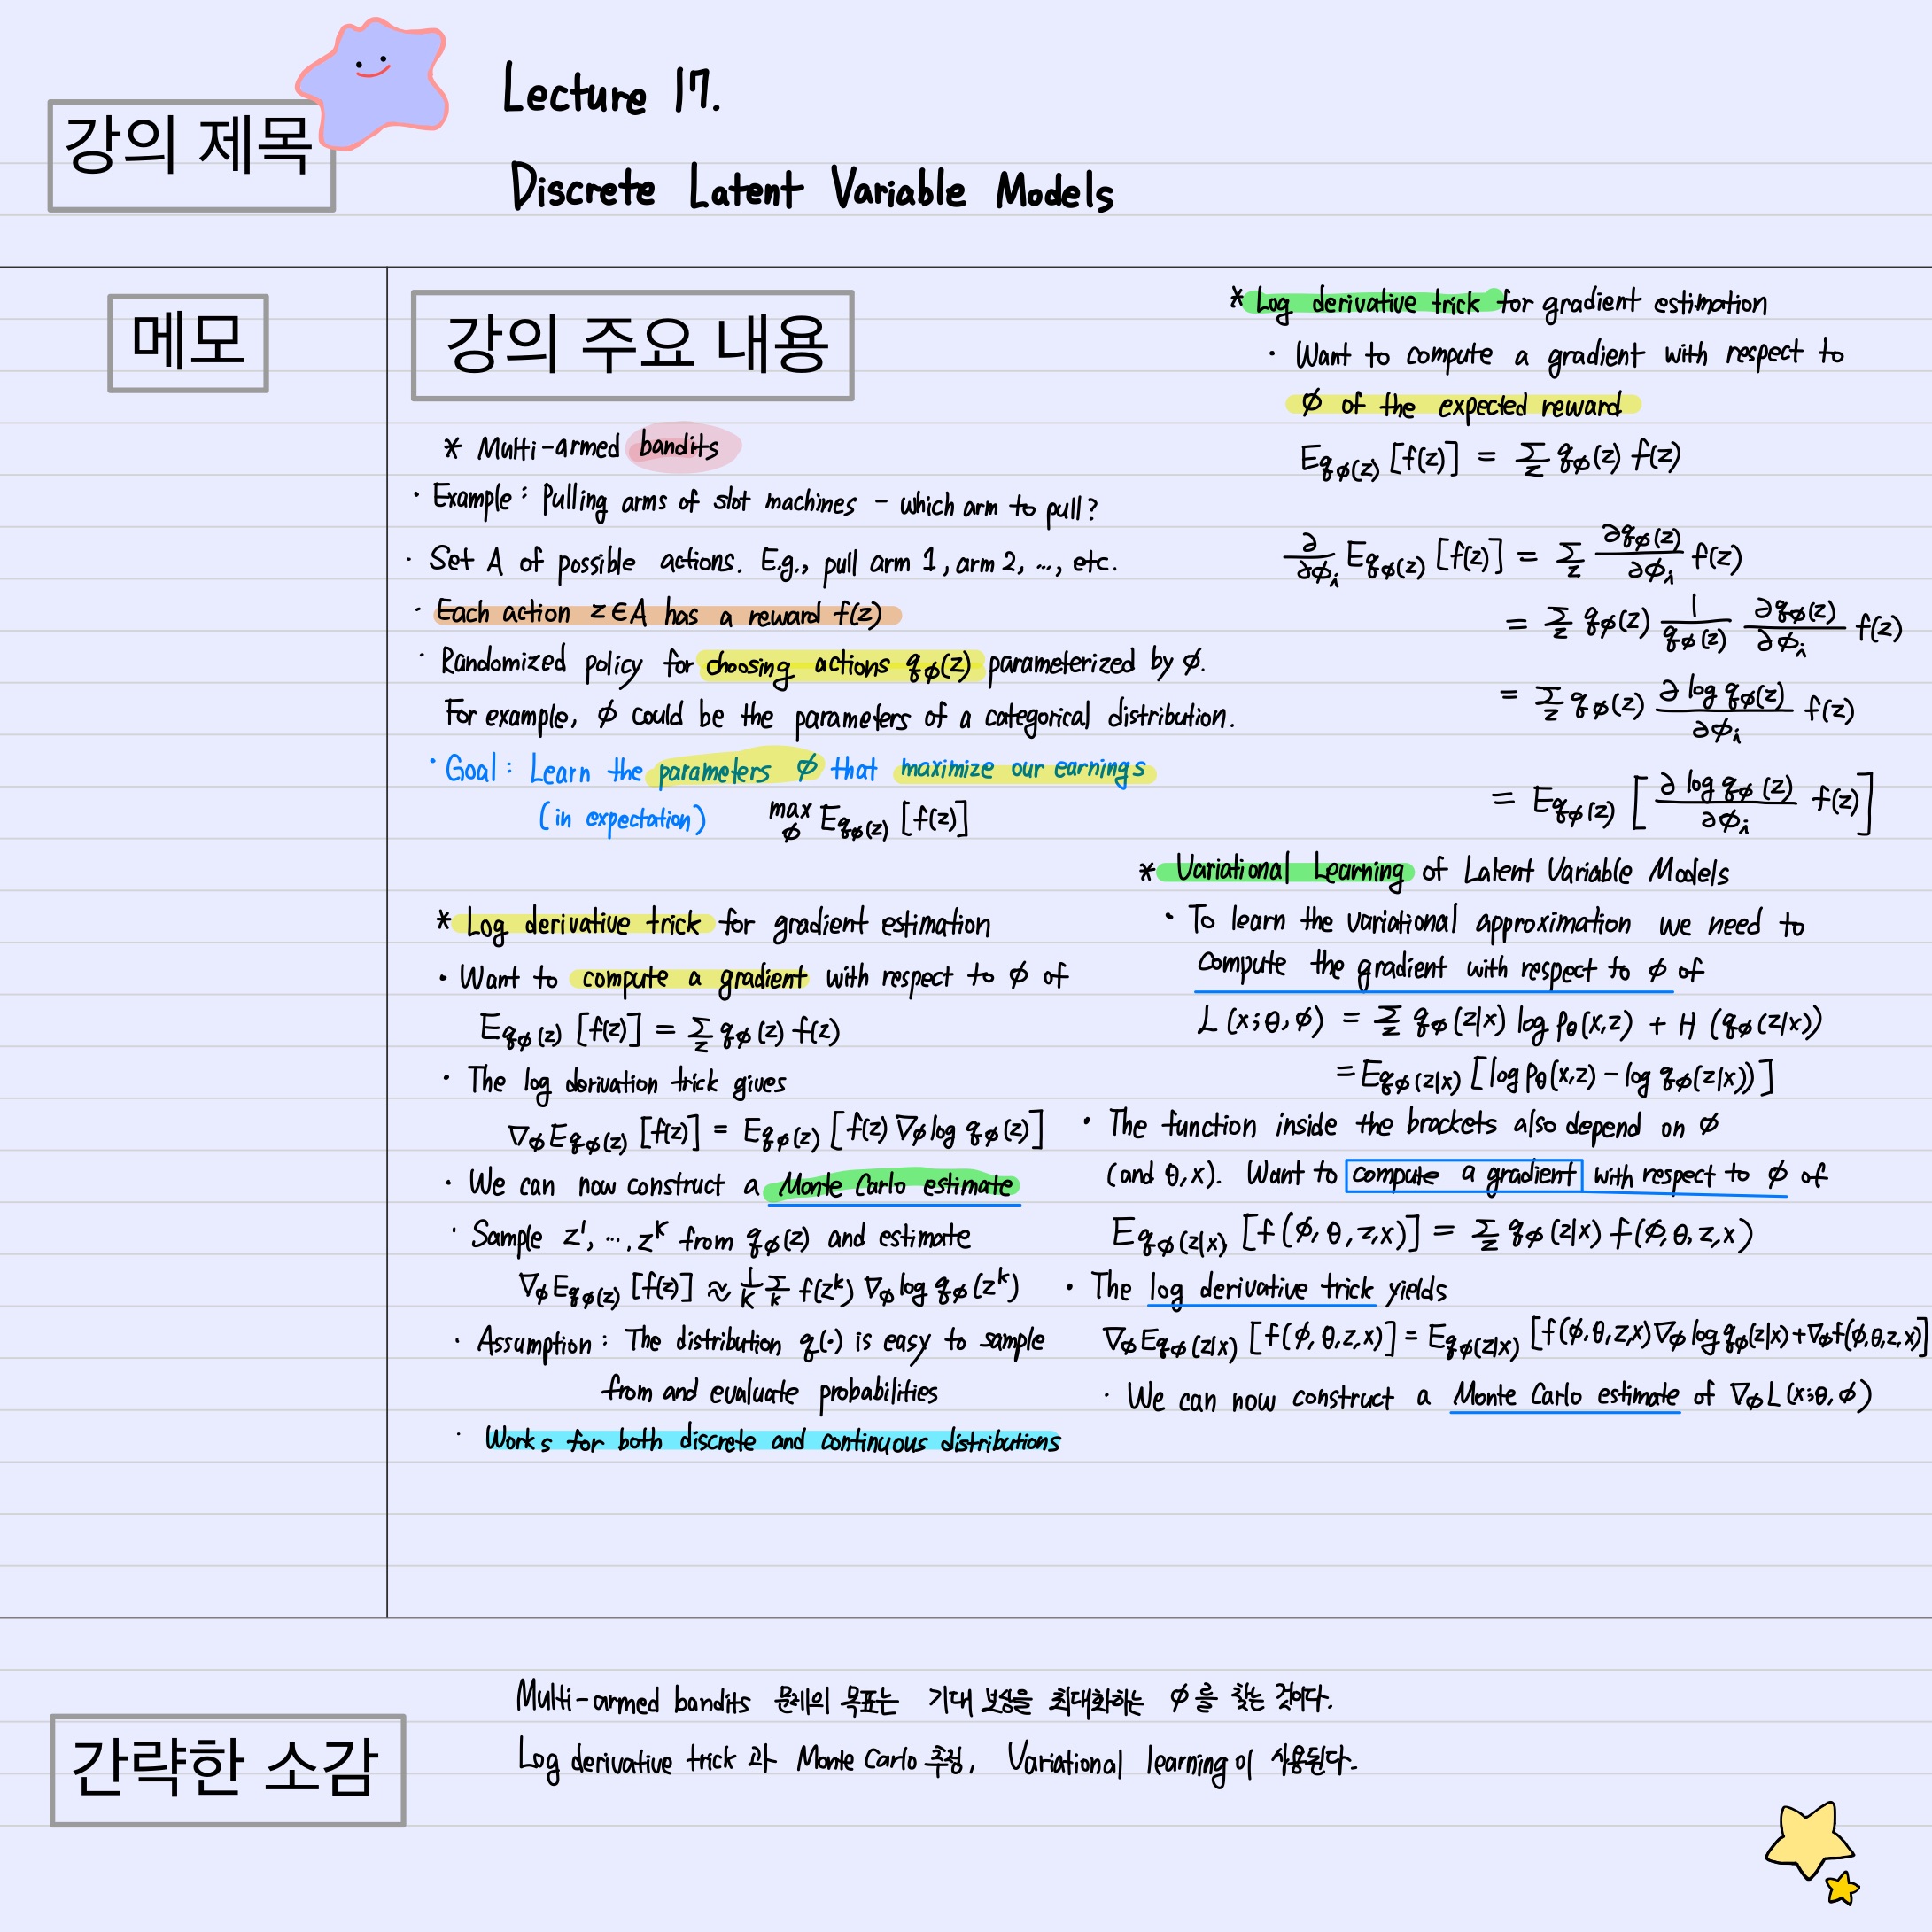 강의 제목
Lecture 17.
Discrete Latent Variable Models
메모
강의 주요 내용
* Multi-armed bandits
· Example : Pulling arms of slot machines - which arm to pull?
· Set A of possible actions. E.g., pull arm 1, arm 2, ..., etc.
· Each action z∈A has a reward f(z)
· Randomized policy for choosing actions q_φ(z) parameterized by φ.
For example, φ could be the parameters of a categorical distribution.
· Goal : Learn the parameters φ that maximize our earnings
(in expectation) max_φ E_{q_φ(z)} [f(z)]
* Log derivative trick for gradient estimation
· Want to compute a gradient with respect to φ of
E_{q_φ(z)} [f(z)] = Σ_z q_φ(z) f(z)
· The log derivation trick gives
∇_φ E_{q_φ(z)} [f(z)] = E_{q_φ(z)} [f(z) ∇_φ log q_φ(z)]
· We can now construct a Monte Carlo estimate
· Sample z¹, ..., z^K from q_φ(z) and estimate
∇_φ E_{q_φ(z)} [f(z)] ≈ 1/K Σ_k f(z^k) ∇_φ log q_φ(z^k)
· Assumption : The distribution q(·) is easy to sample
from and evaluate probabilities
· Works for both discrete and continuous distributions
* Log derivative trick for gradient estimation
· Want to compute a gradient with respect to
φ of the expected reward
E_{q_φ(z)} [f(z)] = Σ_z q_φ(z) f(z)
∂/∂φ_i E_{q_φ(z)} [f(z)] = Σ_z ∂q_φ(z)/∂φ_i f(z)
= Σ_z q_φ(z) 1/q_φ(z) ∂q_φ(z)/∂φ_i f(z)
= Σ_z q_φ(z) ∂ log q_φ(z)/∂φ_i f(z)
= E_{q_φ(z)} [∂ log q_φ(z)/∂φ_i f(z)]
* Variational Learning of Latent Variable Models
· To learn the variational approximation we need to
compute the gradient with respect to φ of
L(x;θ,φ) = Σ_z q_φ(z|x) log p_θ(x,z) + H(q_φ(z|x))
= E_{q_φ(z|x)} [log p_θ(x,z) - log q_φ(z|x))]
· The function inside the brackets also depend on φ
(and θ,x). Want to compute a gradient with respect to φ of
E_{q_φ(z|x)} [f(φ,θ,z,x)] = Σ_z q_φ(z|x) f(φ,θ,z,x)
· The log derivative trick yields
∇_φ E_{q_φ(z|x)} [f(φ,θ,z,x)] = E_{q_φ(z|x)} [f(φ,θ,z,x) ∇_φ log q_φ(z|x) + ∇_φ f(φ,θ,z,x)]
· We can now construct a Monte Carlo estimate of ∇_φ L(x;θ,φ)
간략한 소감
Multi-armed bandits 문제의 목표는 기대 보상을 최대화하는 φ를 찾는 것이다.
Log derivative trick 과 Monte Carlo 추정, Variational learning이 사용된다.